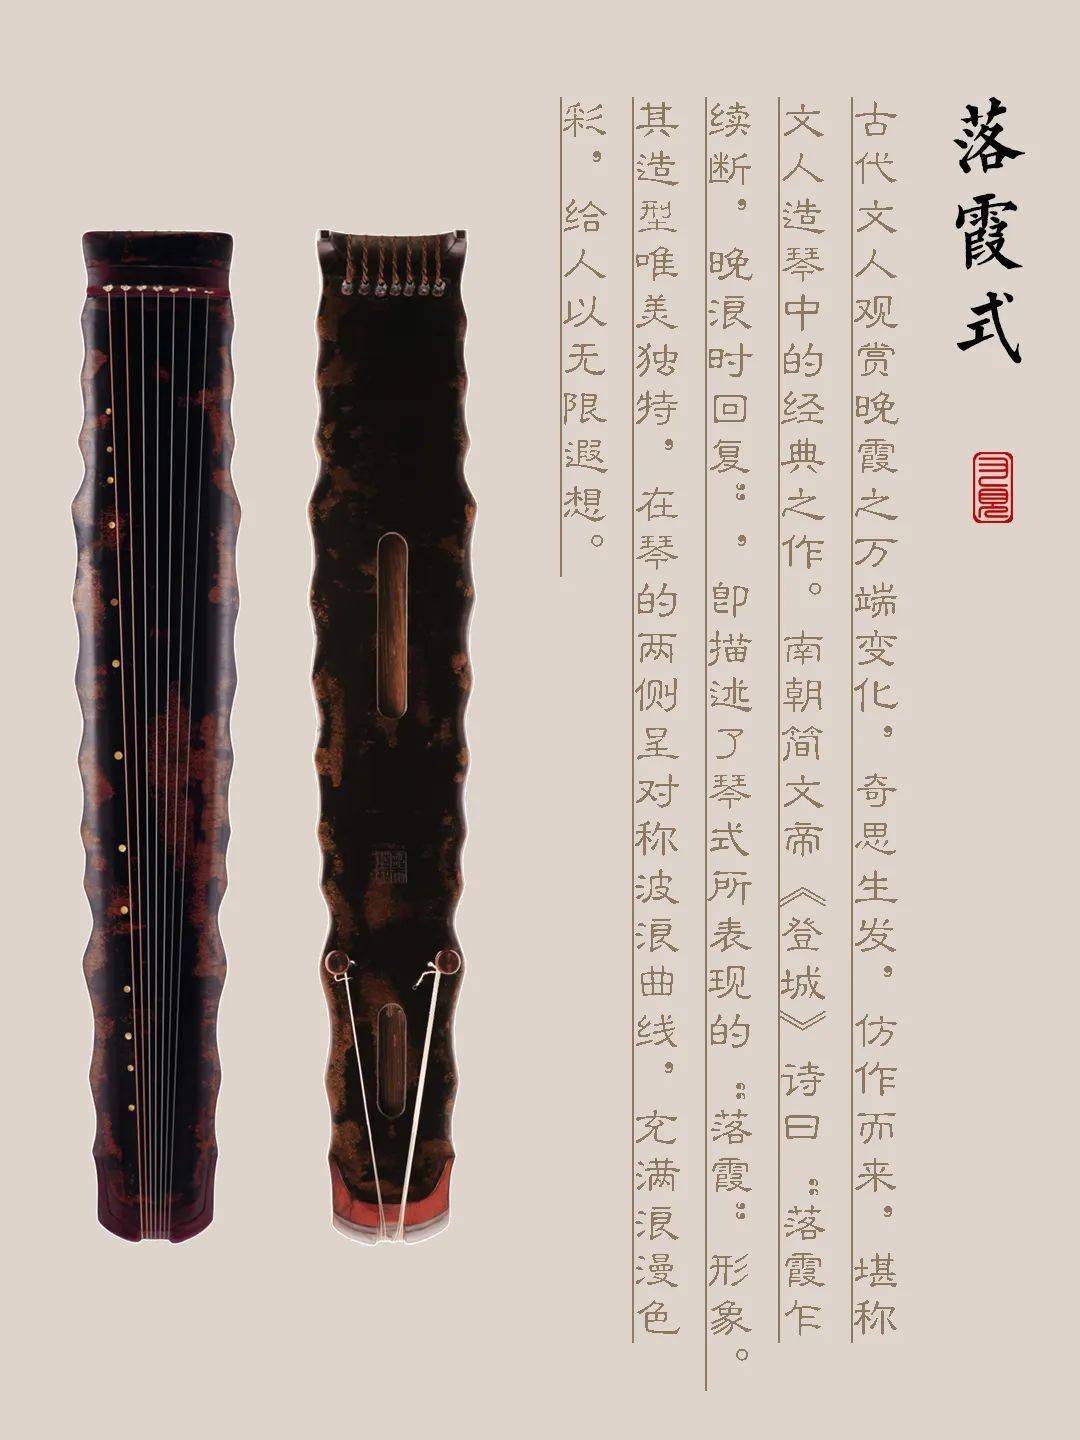 落霞式
古代文人观赏晚霞之万端变化，奇思生发，仿作而来，堪称
文人造琴中的经典之作。南朝简文帝《登城》诗曰“落霞乍
续断，晚浪时回复”，即描述了琴式所表现的“落霞”形象。
其造型唯美独特，在琴的两侧呈对称波浪曲线，充满浪漫色
彩，给人以无限遐想。